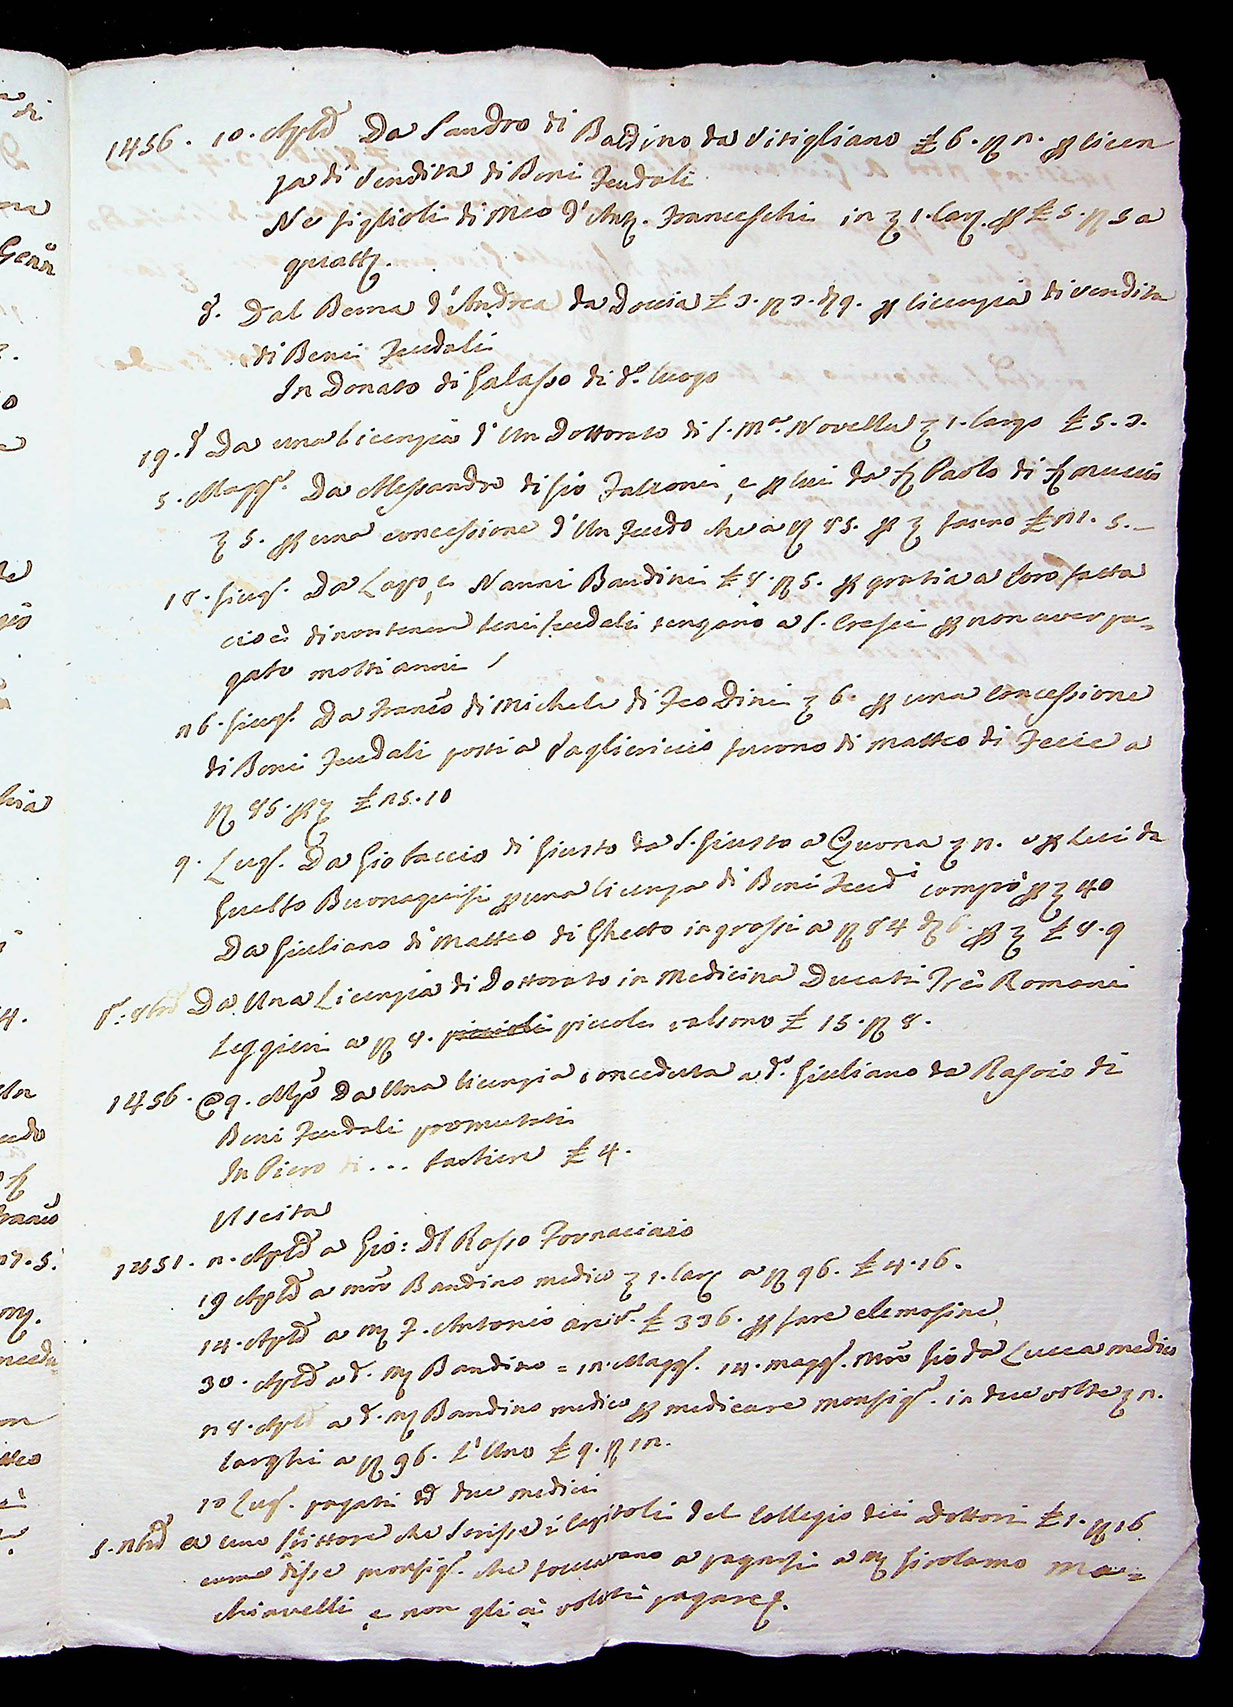 1456. 10. Aple Da Sandro di Baldino da Vitigliano £ 6. ß n. p licen
za di Vendita di Beni Feudali
Ne figlioli di Meo d'Ant. Franceschi in 1. larg. p £ 5. ß 5 a
quatt.
d. Dal Berna d'Andrea da Doccia £ 3. ß 3. 9. p licenzia di vendita
di Beni Feudali
In Donato di Galasso di do. luogo
19. d Da una licenzia d'Un Dottorato di S. Ma. Novella 1. largo £ 5. 3.
5. Magg. Da Alessandro di Gio Falconi, e p lui da Paolo di
5. p una concessione d'Un Feudo che a ß 85. p fanno £ n1. 5.
18. Giug. Da Lapo, e Nanni Bandini £ 8. ß 5. p gratia a loro fatta
cioè di non tenere beni feudali tengono a S. Cresci p non aver pa=
gato molti anni
n6. Giug. Da Franco di Michele di Feo Dini 6. p una concessione
di Beni Feudali posti a Pagliericcio furono di Matteo di Fecie a
ß 85. p £ n5. 10
9. Lug. Da Gio baccio di Giusto da S. Giusto a Quona n. e p lui da
Guelfo Buonaguisi p una licenza di Beni Feudi comprò p 40
Da Giuliano di Matteo di Ghetto in grossi a ß 84 6. p £ 8. 9
P. 8bre Da Una Licenzia di Dottorato in Medicina Ducati Trè Romani
Leggieri a ß 8. piccioli piccoli valsono £ 15. ß 8.
1456. @ 9. Mzo Da Una licenzia conceduta a do. Giuliano da Rasoio di
Beni Feudali promutati
In Piero di ... barbiere £ 4.
Uscita
1451. n. Aple a Gio: Dl Rosso Fornaciaio
19 Aple a mro Bandino medico 1. larg a ß 96. £ 4. 16.
14. Aple a F. Antonio arciv. £ 336. p fare elemosine
30. Aple a d. Bandino = 1n. Magg. 14. magg. Mro Gio da Lucca medico
n8. Aple a d. Bandino medico p medicare monsig. in due volte n.
larghi a ß 96. l'Uno £ 9. ß 1n.
10 Lug. pagati dd due medici
5. Nbre a uno scrittore che scrisse i Capitoli del Collegio dei Dottori £ 1. ß 16
come disse monsig. che toccavano a pagarsi a Girolamo Ma=
chiavelli e non gli à voluti pagare.